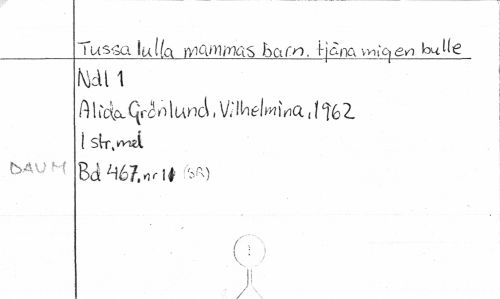 Tussa lulla mammas barn. tjäna mig en bulle
Ndl 1
Alida Grönlund, Vilhelmina, 1962
1 str, mel
DAUM Bd 467, nr 1 (SR)